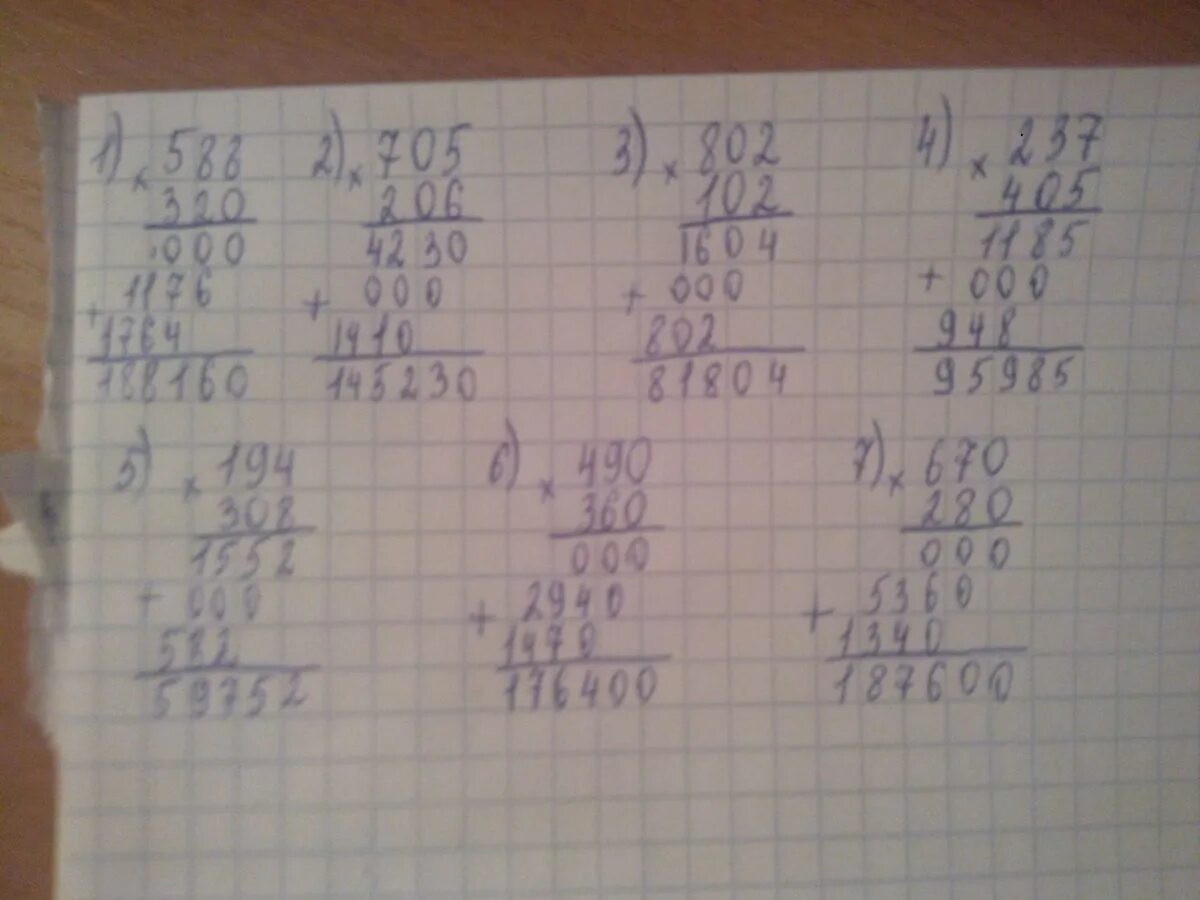 1) × 588
320
000
+ 1176
1764
188160
2) × 705
206
4230
+ 000
1410
145230
3) × 802
102
1604
+ 000
802
81804
4) × 237
405
1185
+ 000
948
95985
5) × 194
308
1552
+ 000
582
59752
6) × 490
360
000
+ 2940
1470
176400
7) × 670
280
000
+ 5360
1340
187600